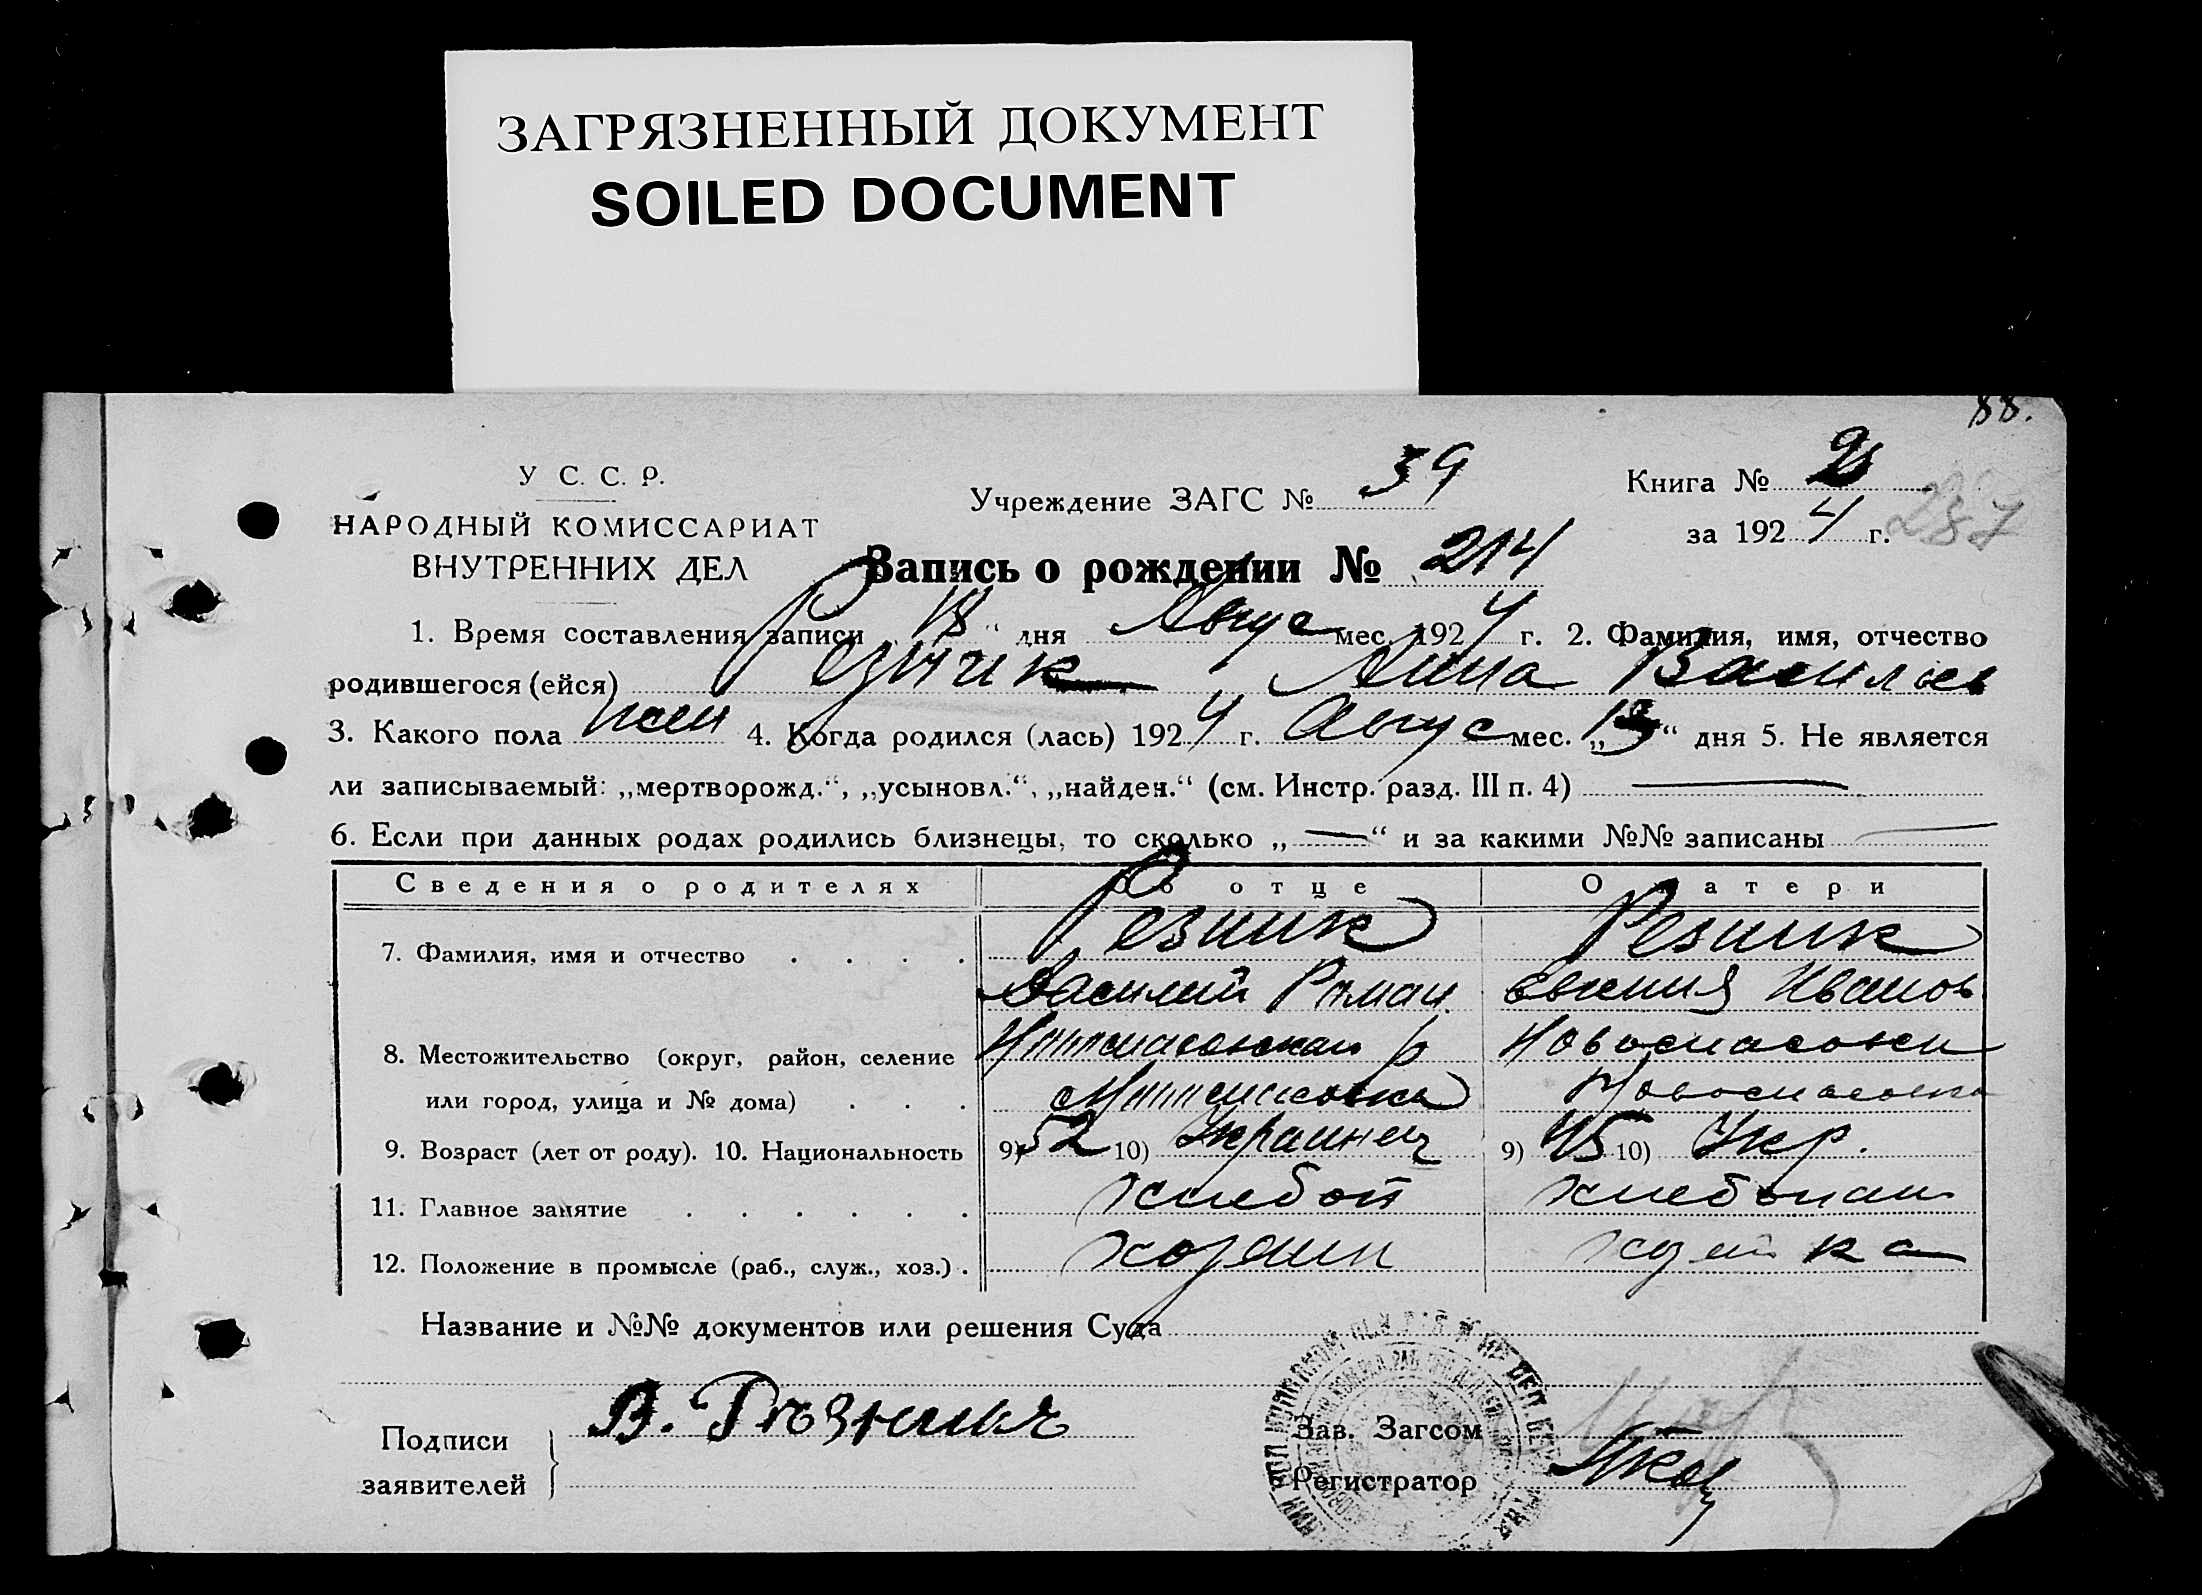 ЗАГРЯЗНЕННЫЙ ДОКУМЕНТ
SOILED DOCUMENT
88.
У С. С. Р.
НАРОДНЫЙ КОМИССАРИАТ
ВНУТРЕННИХ ДЕЛ
Учреждение ЗАГС № 39
Книга № 2
за 1924 г. 287
Запись о рождении № 214
1. Время составления записи „18“ дня Авгус мес. 1924 г. 2. Фамилия, имя, отчество
родившегося (ейся) Резник Анна Васильев
3. Какого пола жен 4. Когда родился (лась) 1924 г. Авгус мес. „13“ дня 5. Не является
ли записываемый: „мертворожд.“, „усыновл.“, „найден.“ (см. Инстр. разд. III п. 4) —
6. Если при данных родах родились близнецы, то сколько „—“ и за какими №№ записаны —
Сведения о родителях Об отце О матери
7. Фамилия, имя и отчество . . . . Резник Резник
Василий Роман. Евгения Иванов
8. Местожительство (округ, район, селение Новоспасовски
или город, улица и № дома) . . . Новоспасовка
9. Возраст (лет от роду). 10. Национальность 9) 52 10) Украинец 9) 45 10) Укр.
11. Главное занятие . . . . . . хлебоп хлебопаш
12. Положение в промысле (раб., служ., хоз.) . хозяин хозяйка
Название и №№ документов или решения Суда
Подписи
заявителей
В. Рѣзникъ
Зав. Загсом
Регистратор